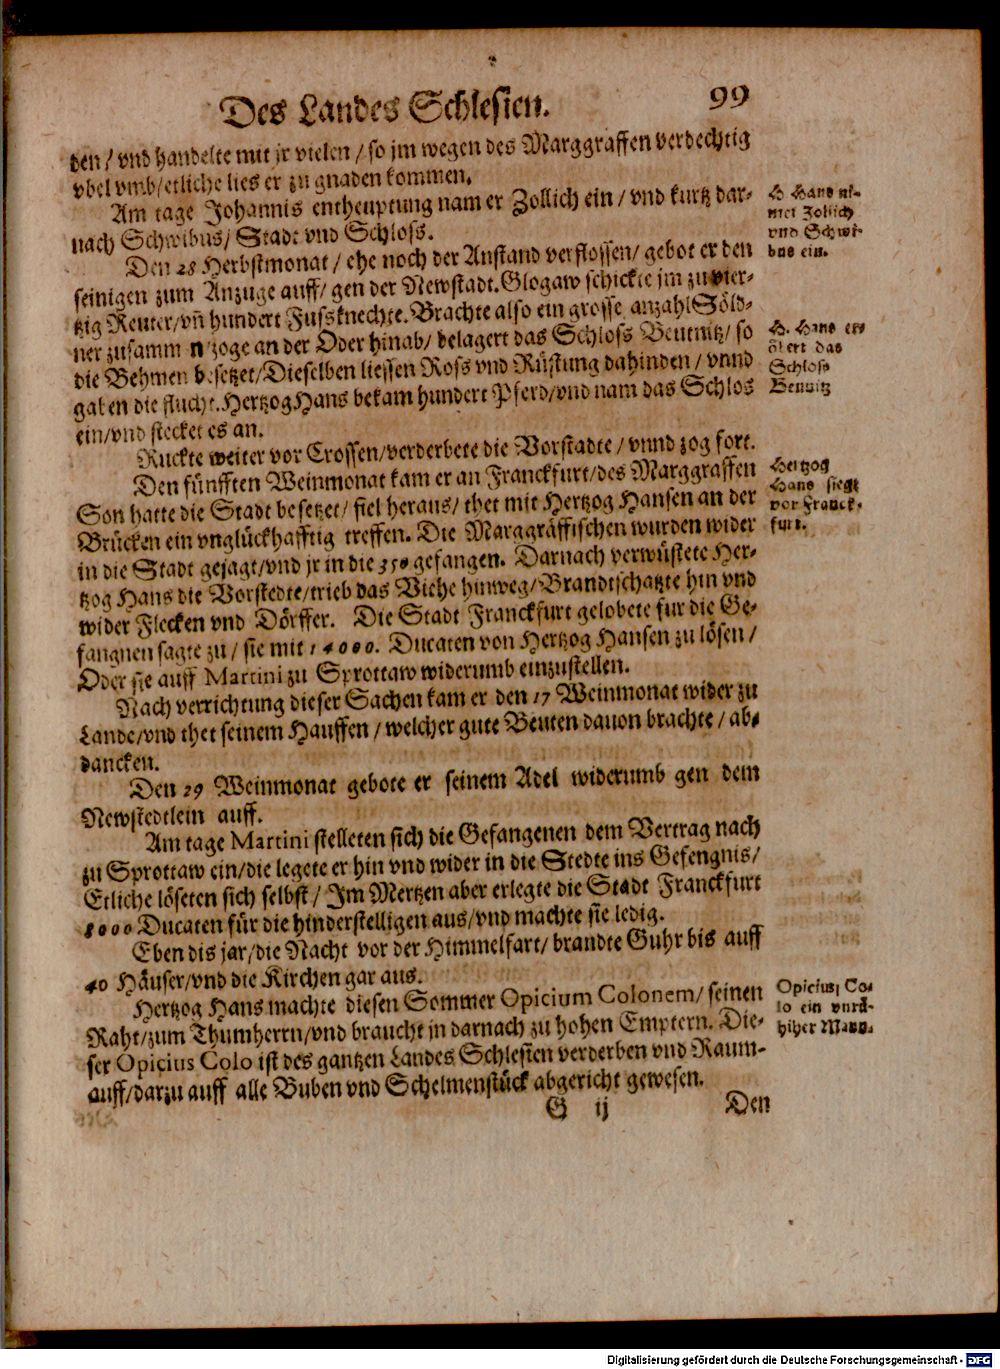 Des Landes Schlesien. 99
den / vnd handelte mit jr vielen / so jm wegen des Marggraffen verdechtig
vbel vmb/etliche lies er zu gnaden kommen.
Am tage Johannis entheuptung nam er Zollich ein / vnd kurtz dar-
nach Schwibus/ Stadt vnd Schloss.
H. Hans ni-
met Zollich
vnd Schwi-
bus ein.
Den 28 Herbstmonat / ehe noch der Anstand verflossen/ gebot er den
seinigen zum Anzuge auff/ gen der Newstadt. Glogaw schickte jm zu vier-
tzig Reuter/vñ hundert Fussknechte. Brachte also ein grosse anzahl Söld-
ner zusammen/ zoge an der Oder hinab/ belagert das Schloss Beutnitz/ so
die Behmen besetzet/Dieselben liessen Ross vnd Rüstung dahinden / vnnd
gaben die flucht. Hertzog Hans bekam hundert Pferd/vnd nam das Schlos
ein/vnd stecket es an.
H. Hans er-
obert das
Schloss
Beutnitz
Ruckte weiter vor Crossen/verderbete die Vorstadte / vnnd zog fort.
Den fünfften Weinmonat kam er an Franckfurt/des Marggraffen
Son hatte die Stadt besetzet/ fiel heraus/ thet mit Hertzog Hansen an der
Brücken ein vnglückhafftig treffen. Die Marggräffischen wurden wider
in die Stadt gejagt/vnd jr in die 350 gefangen. Darnach verwüstete Her-
tzog Hans die Vorstedte/trieb das Viehe hinweg/Brandtschatzte hin vnd
wider Flecken vnd Dörffer. Die Stadt Franckfurt gelobete fur die Ge-
fangnen sagte zu / sie mit 14000. Ducaten von Hertzog Hansen zu lösen /
Oder sie auff Martini zu Sprottaw widerumb einzustellen.
Hertzog
Hans siegt
vor Franck-
furt.
Nach verrichtung dieser Sachen kam er den 17 Weinmonat wider zu
Lande/vnd thet seinem Hauffen / welcher gute Beuten dauon brachte / ab-
dancken.
Den 29 Weinmonat gebote er seinem Adel widerumb gen dem
Newstedtlein auff.
Am tage Martini stelleten sich die Gefangenen dem Vertrag nach
zu Sprottaw ein/die legete er hin vnd wider in die Stedte ins Gefengnis/
Etliche löseten sich selbst / Im Mertzen aber erlegte die Stadt Franckfurt
8000 Ducaten für die hinderstelligen aus/vnd machte sie ledig.
Eben dis jar/die Nacht vor der Himmelfart/ brandte Guhr bis auff
40 Häuser/vnd die Kirchen gar aus.
Hertzog Hans machte diesen Sommer Opicium Colonem/ seinen
Raht/zum Thumherrn/vnd braucht jn darnach zu hohen Emptern. Die-
ser Opicius Colo ist des gantzen Landes Schlesien verderben vnd Raum-
auff/darzu auff alle Buben vnd Schelmenstück abgericht gewesen.
Opicius Co-
lo ein vnrü-
hiher Mann.
G ij Den
Digitalisierung gefördert durch die Deutsche Forschungsgemeinschaft - DFG